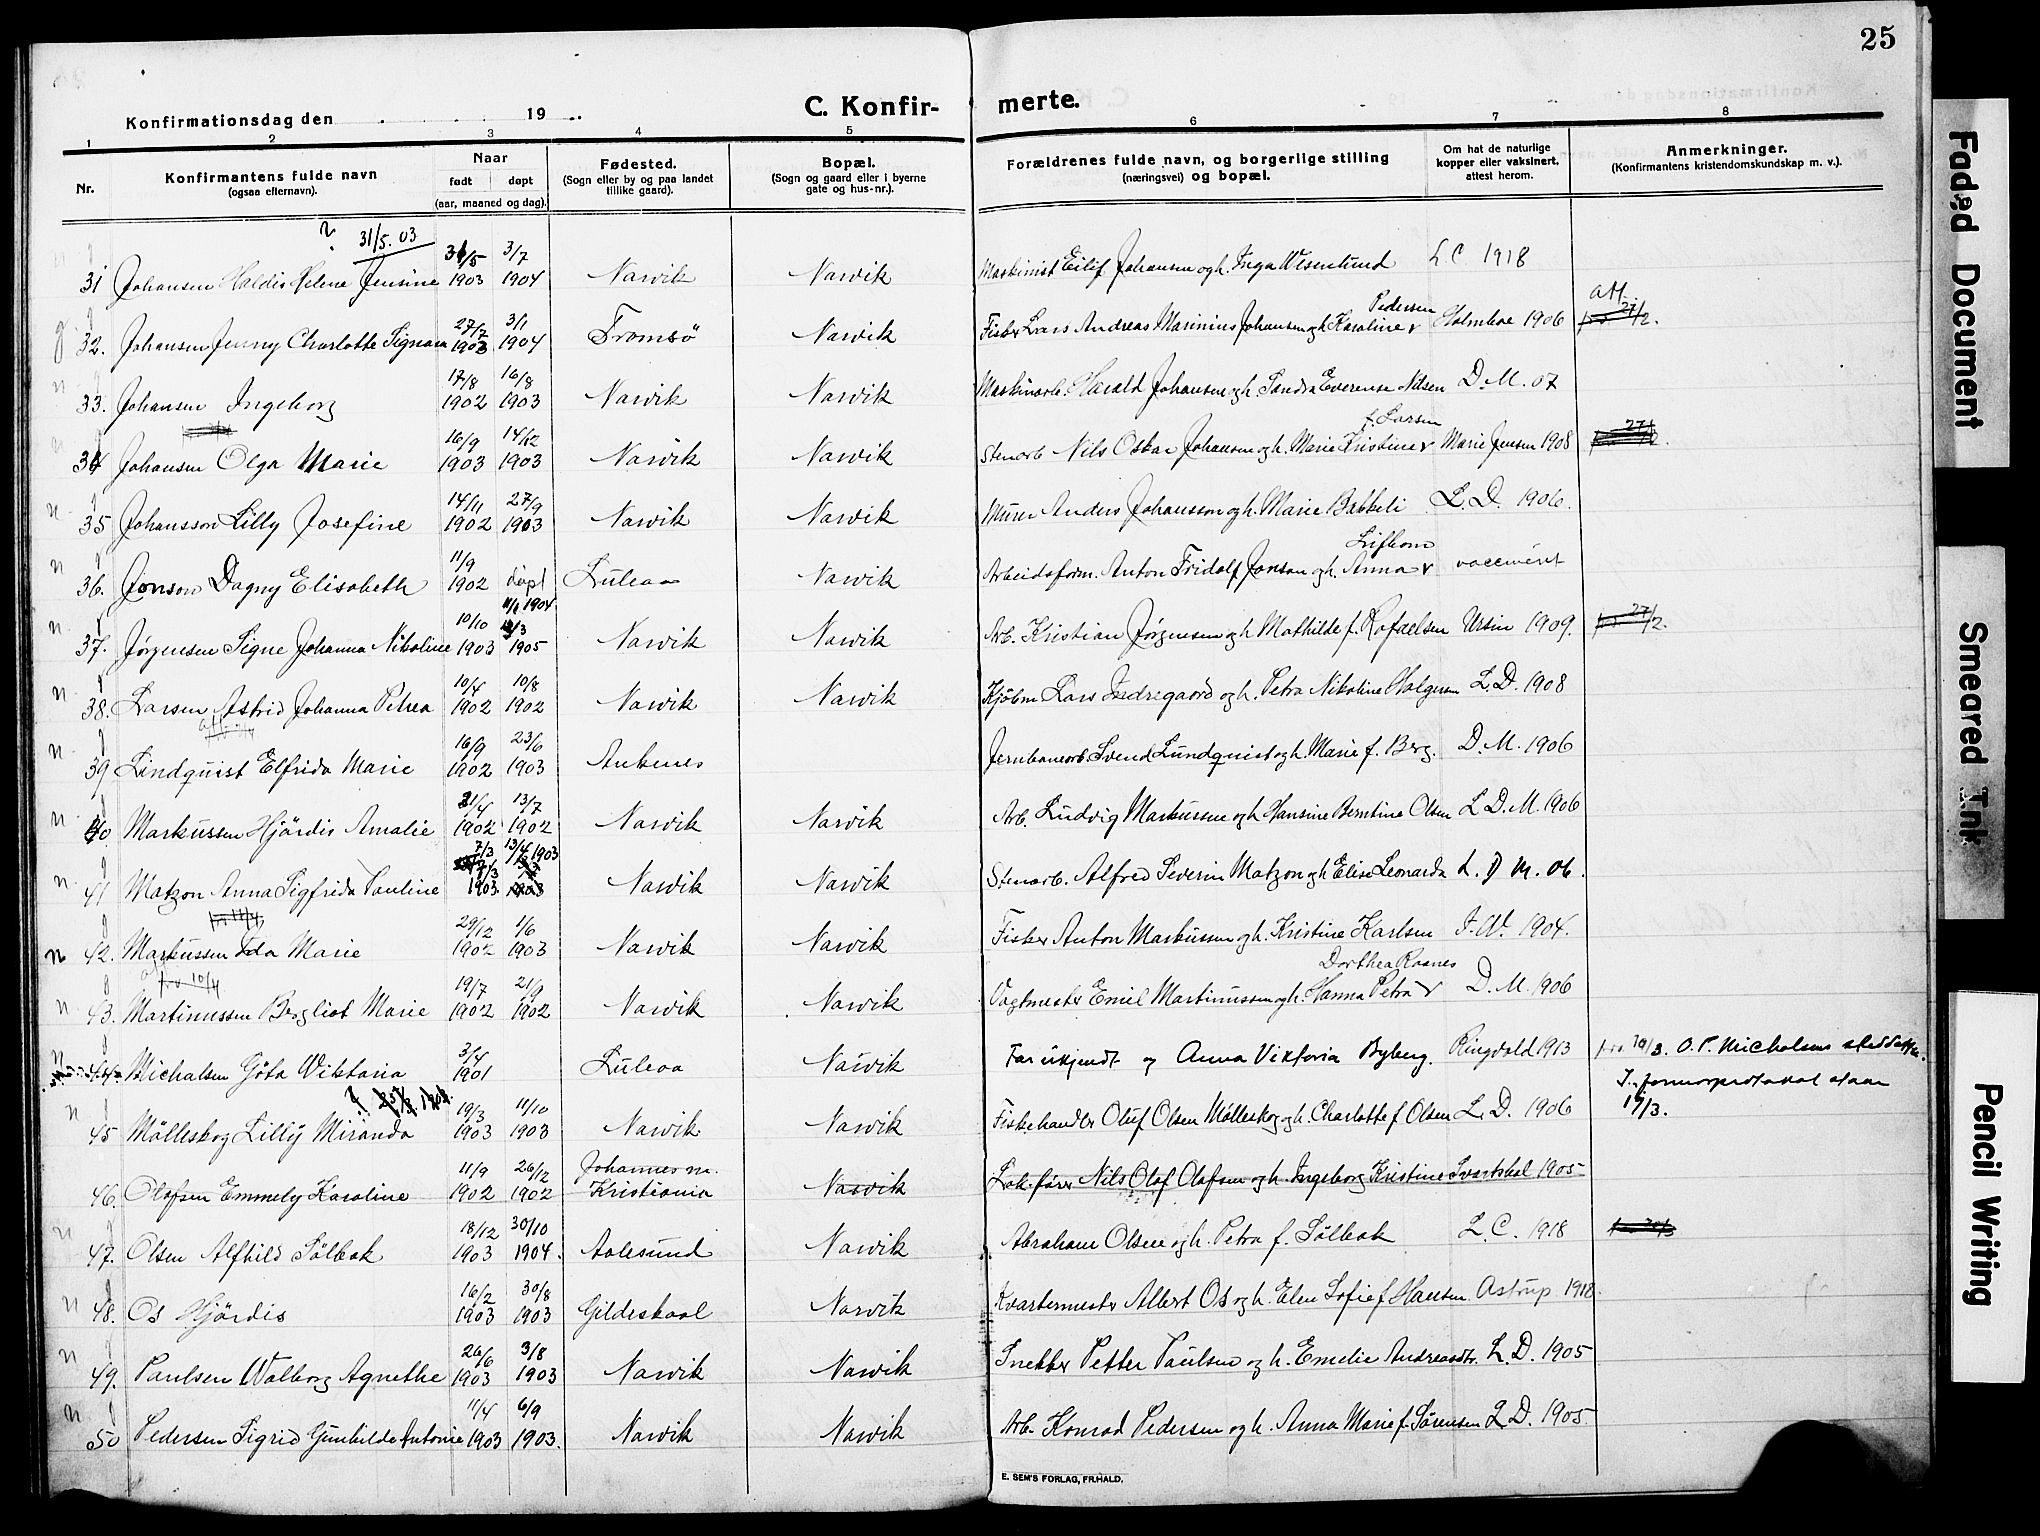 25
Konfirmationsdag den 19
C. Konfir- merte.
1 2 3 4 5 6 7 8
Nr. Konfirmantens fulde navn (ogsaa efternavn). Naar født døpt (aar, maaned og dag). Fødested. (Sogn eller by og paa landet tillike gaard). Bopæl. (Sogn og gaard eller i byerne gate og hus-nr.). Forældrenes fulde navn, og borgerlige stilling (næringsvei) og bopæl. Om hat de naturlige kopper eller vaksinert, attest herom. Anmerkninger. (Konfirmantens kristendomskundskap m. v.).
31/5. 03
31 Johansen Haldis Helene Jensine 31/5 1903 3/7 1904 Narvik Narvik Maskinist Eilif Johansen og h. Inga Wesenlund L C 1918
32. Johansen Jenny Charlotte Signora 27/7 1903 3/1 1904 Tromsö Narvik Fisker Lars Andreas Marinius Johansen og h Karoline Pedersen Holmboe 1906 att.
33. Johansen Ingeborg 17/8 1902 16/8 1903 Narvik Narvik Maskinarb. Harald Johansen og h. Sandra Everense Nilsen D. M. 07
34 Johansen Olga Marie 16/9 1903 14/12 1903 Narvik Narvik Stenarb Nils Oskar Johansen og h. Marie Kristine f. Larsen Marie Jensen 1908
35 Johansson Lilly Josefine 14/11 1902 27/9 1903 Narvik Narvik Murer Anders Johansson og h. Marie Bakkeli L. D. 1906.
36. Jonson Dagny Elisabeth 11/9 1902 døpt 11/1 1904 Luleaa Narvik Arbeidsform. Anton Fridolf Jonson og h. Anna vaccinert
37. Jørgensen Signe Johanna Nikoline 10/10 1903 12/3 1905 Narvik Narvik Arb. Kristian Jørgensen og h Mathilde f. Rafaelsen Ursin 1909. 27/2.
38. Larsen Astrid Johanna Petrea 10/4 1902 10/8 1902 Narvik Narvik Kjøbm Lars Indregaard og h. Petra Nikoline Holgersen L. D. 1908
39 Lindquist Elfrida Marie 16/9 1902 23/6 1903 Ankenes Jernbanearb. Svend Lundquist og h. Marie f. Berg. D. M. 1906
40 Markussen Hjördis Amalie 21/4 1902 13/7 1902 Narvik Narvik Arb. Ludvig Markussen og h Hansine Berntine Olsen L D. M. 1906
41 Matzon Anna Sigfrida Pauline 7/3 1903. 13/4 1903 Narvik Narvik Stenarb. Alfred Severin Matzon og h Elise Leonarda L. D M. 06.
42. Markussen Ida Marie 29/12 1902 1/6 1903 Narvik Narvik Fisker Anton Markussen og h. Kristine Karlsen J. W. 1904.
43. Martinussen Bergliot Marie 19/7 1902 21/9 1902 Narvik Narvik Vagtmester Emil Martinussen og h. Hanna Petra Dorthea Rasnes D. M. 1906
44 Michalsen Göta Viktoria 3/4 1901 Luleaa Narvik Far ukjendt og Anna Viktoria Byberg. Ringvold 1913 19/3. O. P. Michalsens steddatter.
45 Mölleskog Lilly Miranda 19/3 1903 11/10 1903 Narvik Narvik Fiskehandler Oluf Olsen Mølleskog og h. Charlotte f Olsen L. D. 1906 I. fonnorprotokol staar 19/3.
46. Olofsen Emmely Karoline 11/9 1902 26/12 1902 Johannes m. Kristiania Narvik Lok. fører Nils Olof Olofsen og h. Ingeborg Kristine Svartskal 1905
47. Olsen Alfhild Sölbak 18/12 1903 30/10 1904. Aalesund Narvik Abraham Olsen og h. Petra f. Sölbak L. C. 1918
48. Os Hjördis 16/2 1903 30/8 1903 Gildeskaal Narvik Kvartermester Albert Os og h. Elen Sofie f Hansen Astrup 1918.
49. Paulsen Valborg Agnethe 26/6 1903 3/8 1903 Narvik Narvik Snekker Petter Paulsen og h. Emelie Andreasdtr. L. D. 1905
50 Pedersen Sigrid Gunhilde Antonie 11/4 1903 6/9 1903. Narvik Narvik Arb. Konrad Pedersen og h. Anna Marie f. Sørensen L D. 1905
E. SEM'S FORLAG, FR.HALD.
Faded Document
Smeared Ink
Pencil Writing